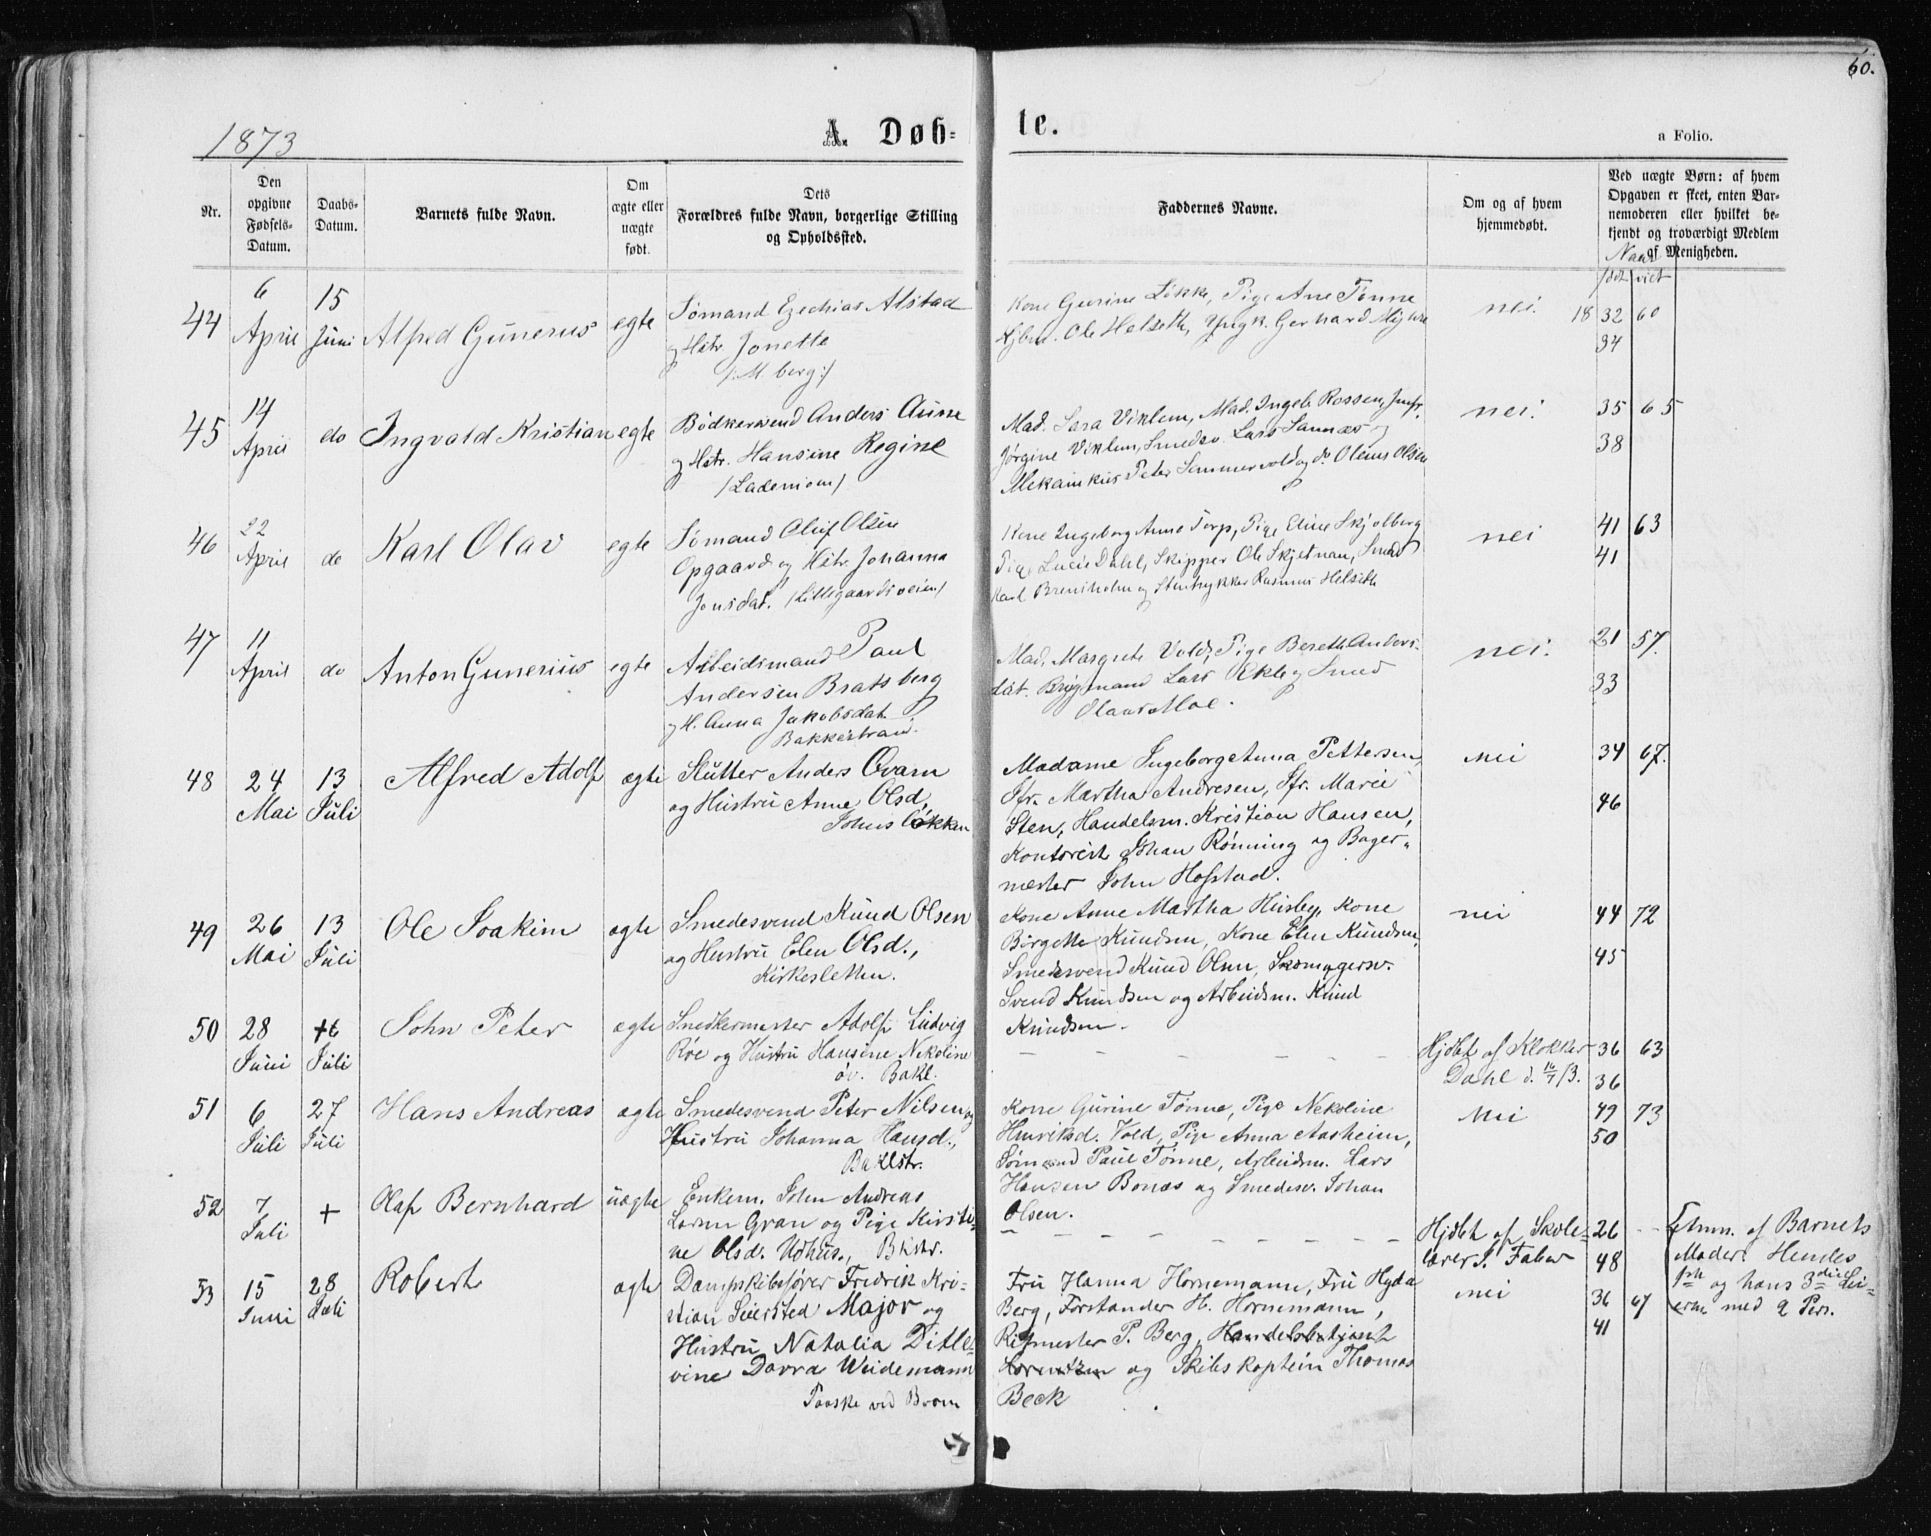 60.
1873
A. Døb-
te.
a Folio.
Nr.
Den
opgivne
Fødsels-
Datum.
Daabs-
Datum.
Barnets fulde Navn.
Om
ægte eller
uægte
født.
Dets
Forældres fulde Navn, borgerlige Stilling
og Opholdssted.
Faddernes Navne.
Om og af hvem
hjemmedøbt.
Ved uægte Børn: af hvem
Opgaven er skeet, enten Bar-
nemoderen eller hvilket be-
kjendt og troværdigt Medlem
af Menigheden.
Naar
født viet
44
6
April
15
Juni
Alfred Gunerius
egte
Sømand Ezechias Alstad
og Hstr. Jonette
/: M. berg :/
Kone Gurine Løkke, Pige Ane Tønne
Ole Helseth, Yngk. Gerhard
nei.
18 32 60
34
45
14
April
do
Ingvald Kristian
egte
Bødkersvend Anders Aune
og Hstr. Hansine Regine
/Ladeniom/
Mad. Sara Viklem, Mad. Ingeb. Rossen, Jmfr.
Jørgine Viklem, Smedsv. Lars Sannæs og
Mekanikus Peter Semmervold og do. Oleus Olsen
nei.
35 65
38
46
22
April
do
Karl Olav
egte
Sømand Oluf Olsen
Opgaard og Hstr. Johanna
Jonsdat. /Lillegaardsveien/
Kone Ingeborg Anne Torp, Pige Eline Skjelberg
Pige Lucie Dahl, Skipper Ole Skjetnan, Smed
Karl Breniholm og Stentrykker Rasmus Helseth
nei
41 63
41
47
11
April
do
Anton Gunerius
egte
Arbeidsmand Paul
Andersen Bratsberg
og H. Anna Jakobsdat.
Bakkestrand.
Mad. Margrete Vold, Pige Bereth Anders-
dat. Brygmand Lars Ekle og Smed
Olaus Moe.
nei.
21 57.
33
48
24
Mai
13
Juli
Alfred Adolf
ægte
Slutter Anders Qvam
og Hustru Anne Olsd,
Johns Løkken
Madame Ingeborg Anna Pettersen,
Jfr. Martha Andresen, Jfr. Marie
Sten, Handelsm. Kristian Hansen,
Kontorist Johan Rønning og Bager-
mester John Hofstad.
nei
34 67.
46
49
26
Mai
13
Juli
Ole Joakim
ægte
Smedesvend Knud Olsen
og Hustru Elen Olsd.,
Kirkesletten.
Kone Anne Martha Husby, Kone
Birgette Knudsen, Kone Elen Knudsen,
Smedesvend Knud Olsen, Skomagersv.
Svend Knudsen og Arbeidsm. Knud
Knudsen.
nei
44 72
45
50
28
Juni
Juli
John Peter
ægte
Snedkermester Adolf Ludvig
Røe og Hustru Hansine Nekoline
øv. Bakl.
Hjdbt af Klokker
Dahl d. 16/7 73.
36 63
36
51
6
Juli
27
Juli
Hans Andreas
ægte
Smedesvend Peter Nilsen og
Hustru Johanna Hansd.,
Baklstr.
Kone Gurine Tønne, Pige Nekoline
Henriksd. Vold, Pige Anna Aasheim,
Sømand Paul Tønne, Arbeidsm. Lars
Hansen Bonæs og Smedesv. Johan
Olsen.
nei
49 73
50
52
7
Juli
+
Olaf Bernhard
uægte
Enkem. John Andreas
Larsen Gran og Pige Kirsti-
ne Olsd. Udhus., Bkstr.
Hjdbt af Skole-
lærer J. Faber
26 --
48
Anm. af Barnets
Moder. Hendes
1ste og hans 3die Lei-
ersm. med 2 Pers.
53
15
Juni
28
Juli
Robert
ægte
Dampskibsfører Fredrik Kri-
stian Seiersted Major og
Hustru Natalia Ditle-
vine Dovra Weidemann
Paaske ved Broen
Fru Hanna Hornemann, Fru Hyda
Berg, Forstander H. Hornemann,
Rigmester P. Berg, Handelsbetjent
Lorentzen og Skibskaptein Thomas
Beck
nei
36 67
41